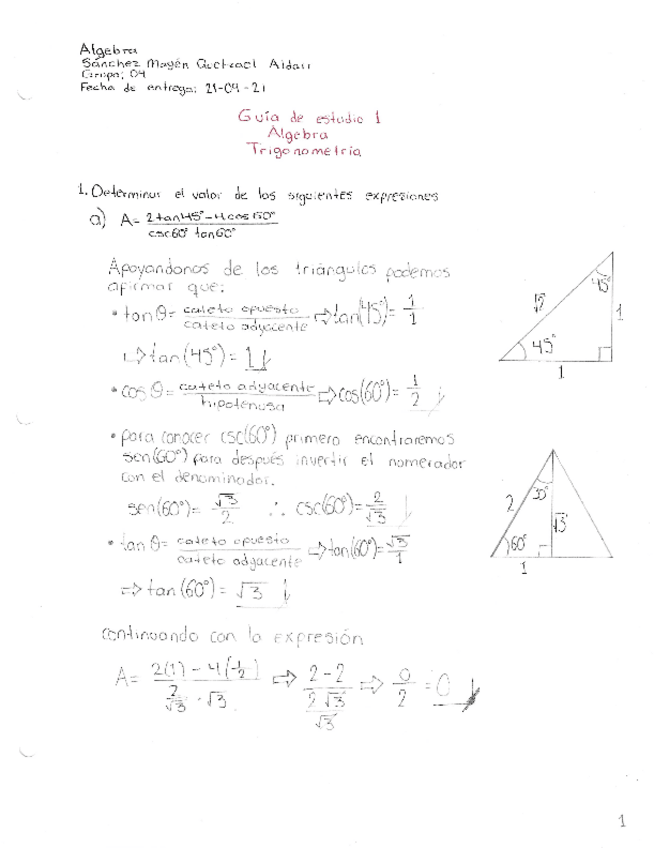 Algebra
Sánchez Mayén Quetzael Aldair
Grupo: 04
Fecha de entrega: 21-04-21
Guía de estudio 1
Álgebra
Trigonometría
1. Determinar el valor de las siguientes expresiones
a) A= (2tan45° - 4cos60°)/(csc60° tan60°)
Apoyandonos de los triángulos podemos
afirmar que:
• tan θ = cateto opuesto/cateto adyacente ⇒ tan(45°) = 1/1
↳ tan(45°) = 1
• cos θ = cateto adyacente/hipotenusa ⇒ cos(60°) = 1/2
• para conocer csc(60°) primero encontraremos
sen(60°) para después invertir el nomerador
con el denominador.
sen(60°) = √3/2 ∴ csc(60°) = 2/√3
• tan θ = cateto opuesto/cateto adyacente ⇒ tan(60°) = √3/1
⇒ tan(60°) = √3
continuando con la expresión
A= (2(1) - 4(1/2))/(2/√3 · √3) ⇒ (2-2)/(2√3/√3) ⇒ 0/2 = 0
45°
√2
1
45°
1
30°
2
√3
60°
1
1